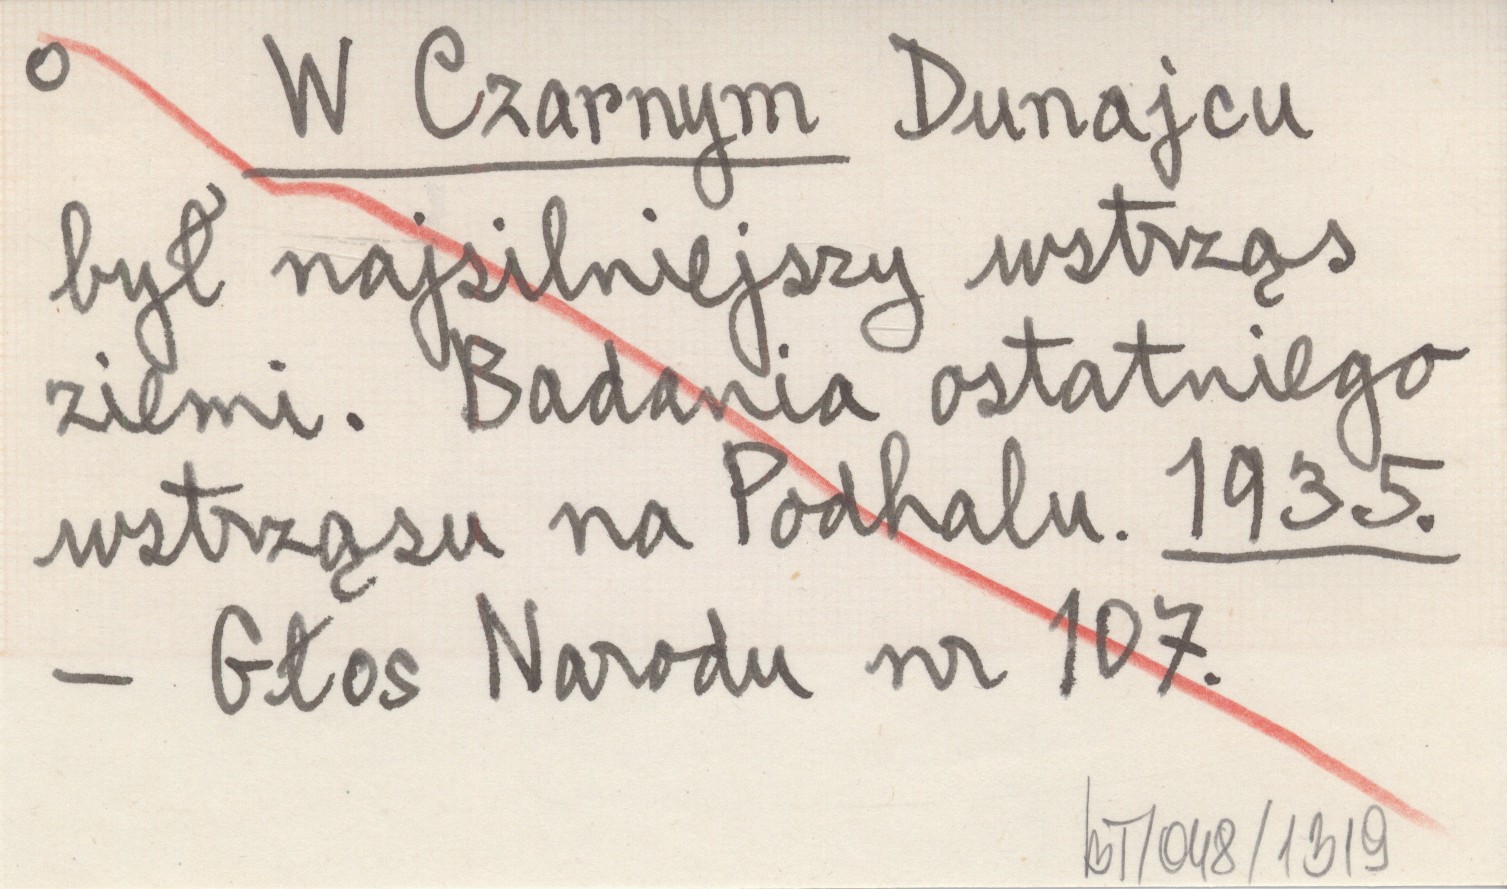 o W Czarnym Dunajcu
był najsilniejszy wstrząs
ziemi. Badania ostatniego
wstrząsu na Podhalu. 1935.
– Głos Narodu nr 107.
BT/048/1319